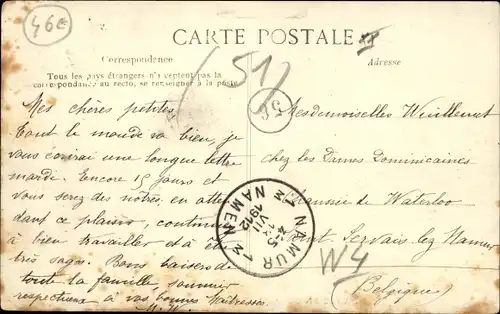 46c
CARTE POSTALE
Correspondance
Adresse
Tous les pays étrangers n'acceptent pas la
correspondance au recto, se renseigner à la poste
(51)
36
Mes chères petites,
Tout le monde va bien, je
vous écrirai une longue lettre
mardi. Encore 15 jours et
vous serez des nôtres, en atten
dant ce plaisir, continuez
à bien travailler et à être
très sages. Bons baisers de
toute la famille, souvenir
respectueux à vos bonnes Maîtresses
Mesdemoiselles
chez les Dames Dominicaines
Chaussée de Waterloo
Saint Servais lez Namur
(Belgique)
NAMUR
NAMEN
4-5
VII
1912
W4